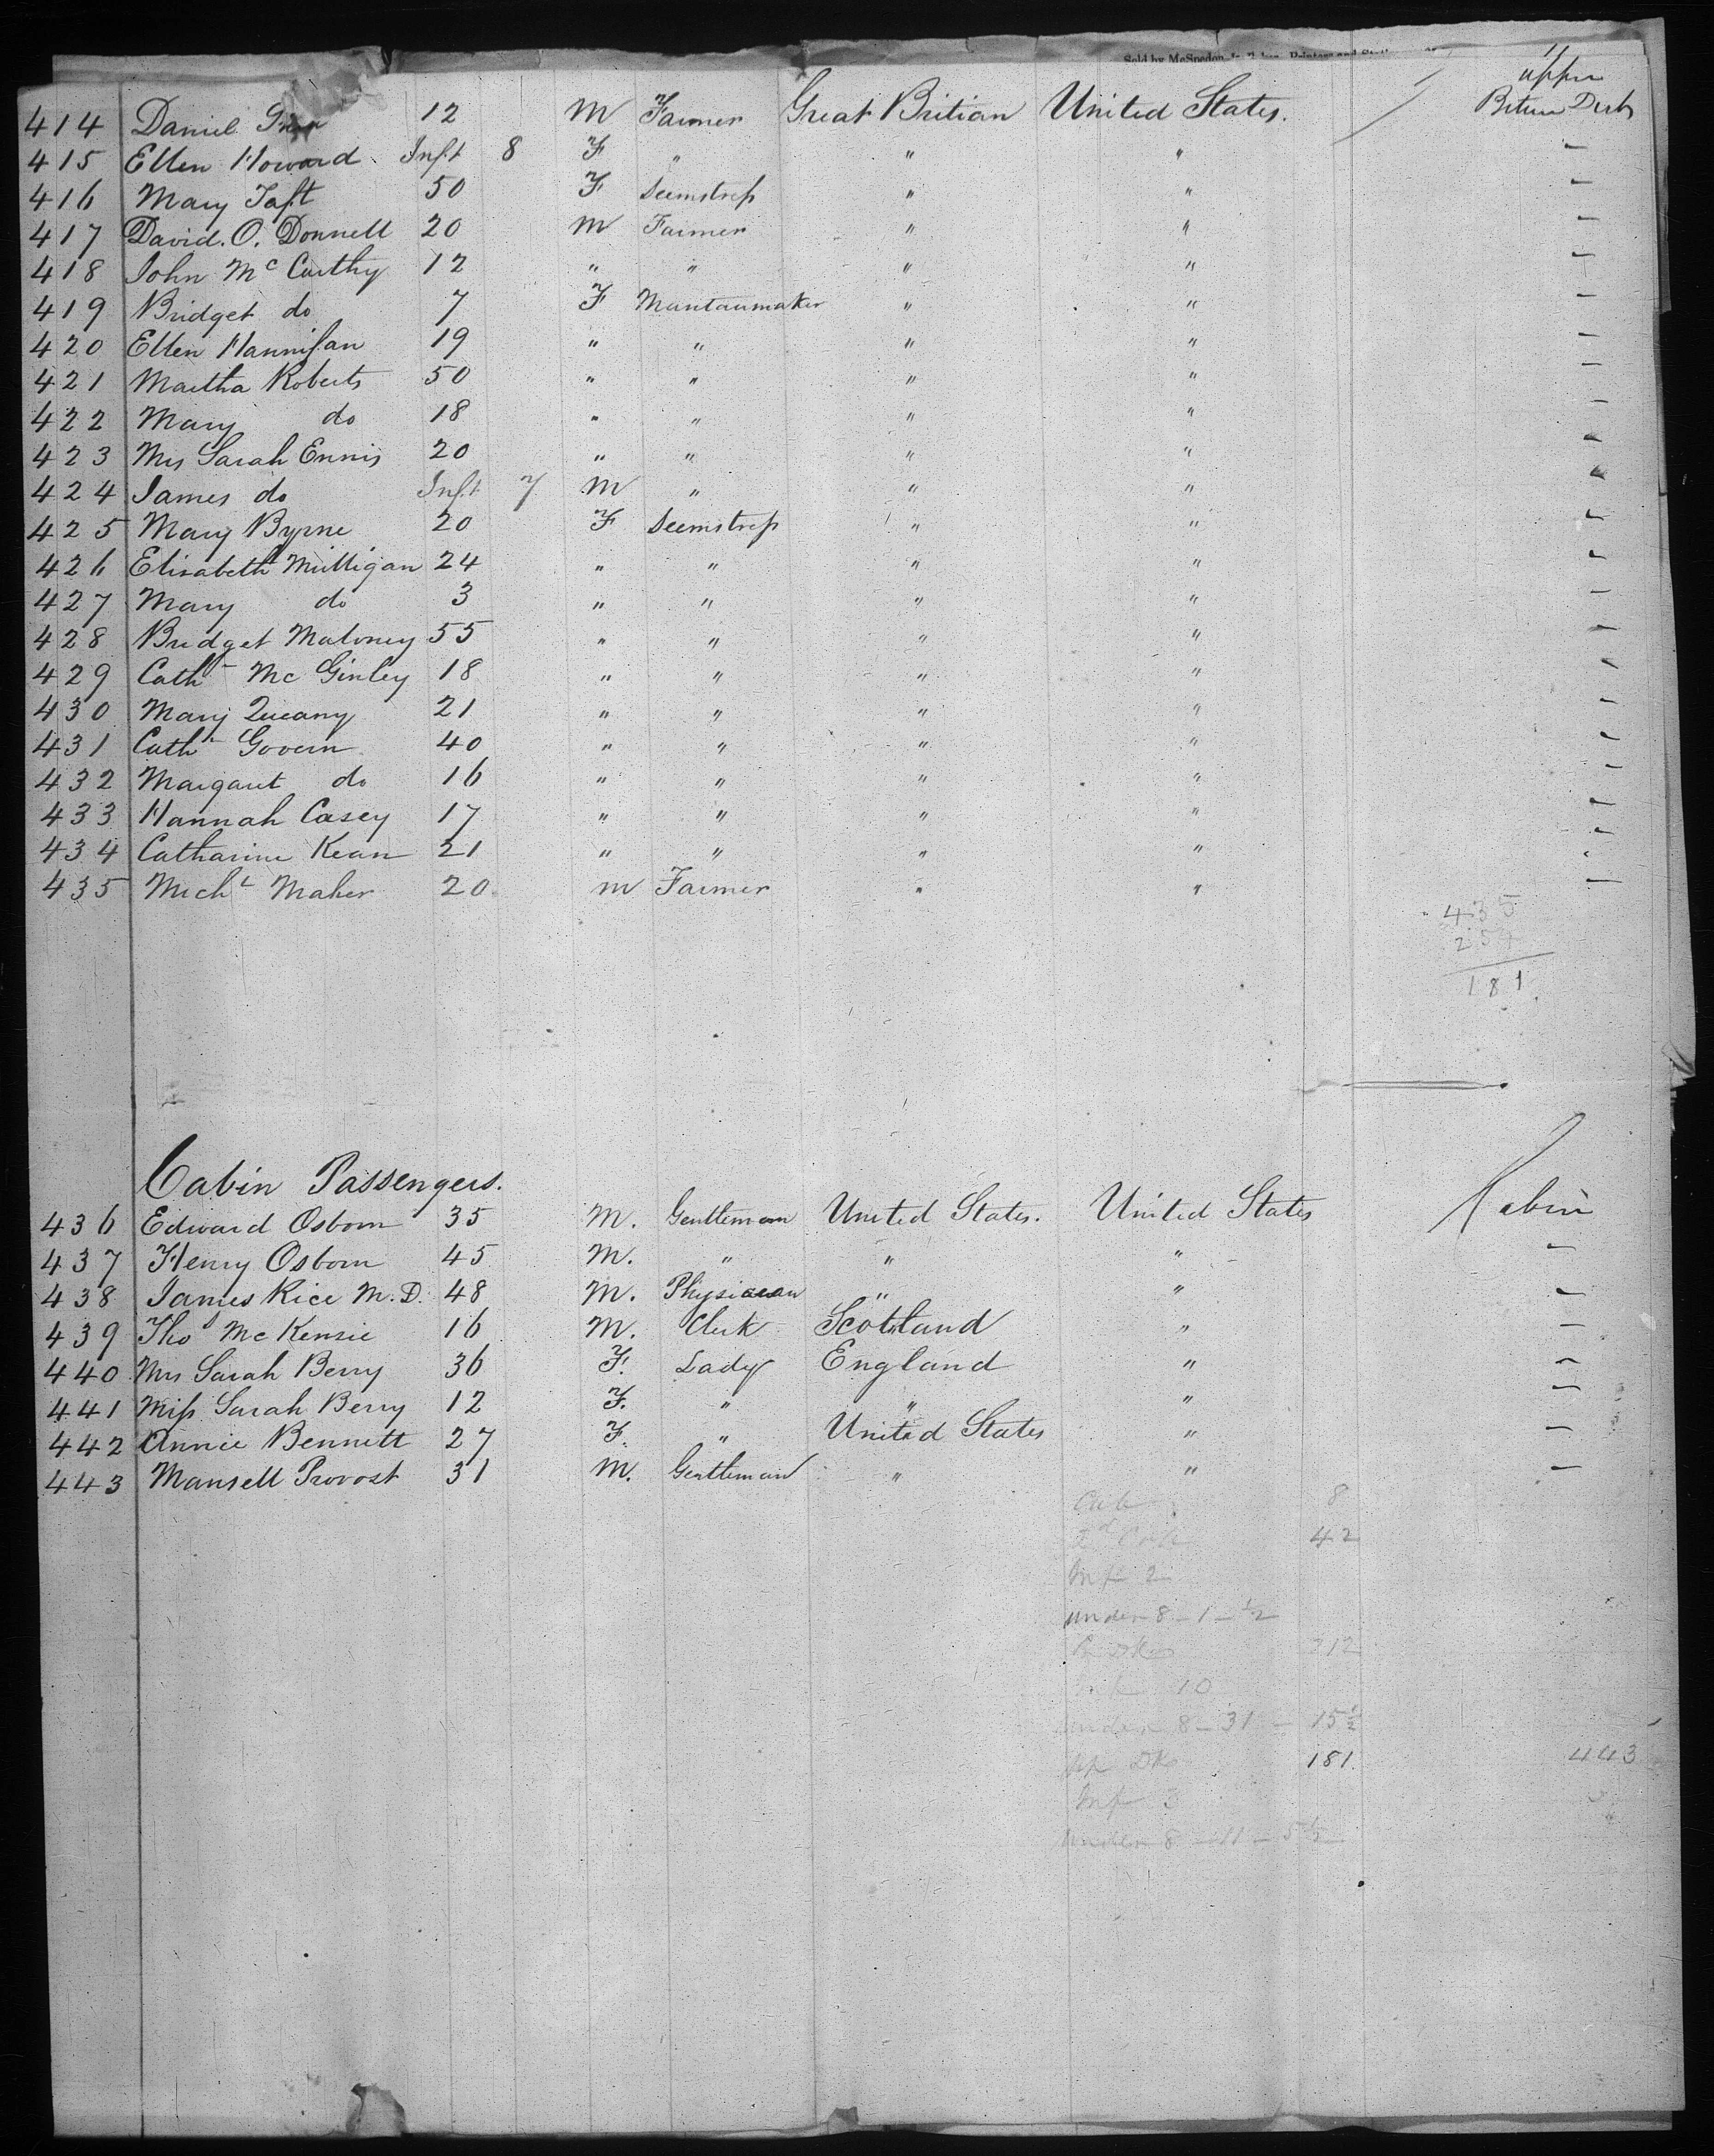 Sold by McSpedon
upper
414 Daniel 12 M Farmer Great Britian United States. Betwn Decks
415 Ellen Howard Inft 8 F " " " —
416 Mary Taft 50 F Seemstress " " —
417 David. O. Donnell 20 M Farmer " " —
418 John Mc Carthy 12 " " " " —
419 Bridget do 7 F Mantaumaker " " —
420 Ellen Hannifan 19 " " " " —
421 Martha Roberts 50 " " " " —
422 Mary do 18 " " " " —
423 Mrs Sarah Ennis 20 " " " " —
424 James do Inft 7 M " " " —
425 Mary Byrne 20 F Seemstress " " —
426 Elisabeth Milligan 24 " " " " —
427 Mary do 3 " " " " —
428 Bridget Maloney 55 " " " " —
429 Cath Mc Ginley 18 " " " " —
430 Mary Queany 21 " " " " —
431 Cath Govern 40 " " " " —
432 Margaret do 16 " " " " —
433 Hannah Casey 17 " " " " —
434 Catharine Kean 21 " " " " —
435 Michl Maher 20 M Farmer " " —
435
254
181
Cabin Passengers.
436 Edward Osborn 35 M. Gentleman United States. United States Cabin
437 Henry Osborn 45 M. " " " —
438 James Rice M.D. 48 M. Physician " " —
439 Thos Mc Kensie 16 M. Clerk Scotland " —
440 Mrs Sarah Berry 36 F. Lady England " —
441 Miss Sarah Berry 12 F. " " " —
442 Annie Bennett 27 F. " United States " —
443 Mansell Provost 31 M. Gentleman " " —
Cab 8
2d Cab 42
Inf 2
under 8 - 1 - ½
Dks 212
Inf 10
under 8 - 31 - 15½
up Dks 181. 443
Inf 3
under 8 - 11 - 5½